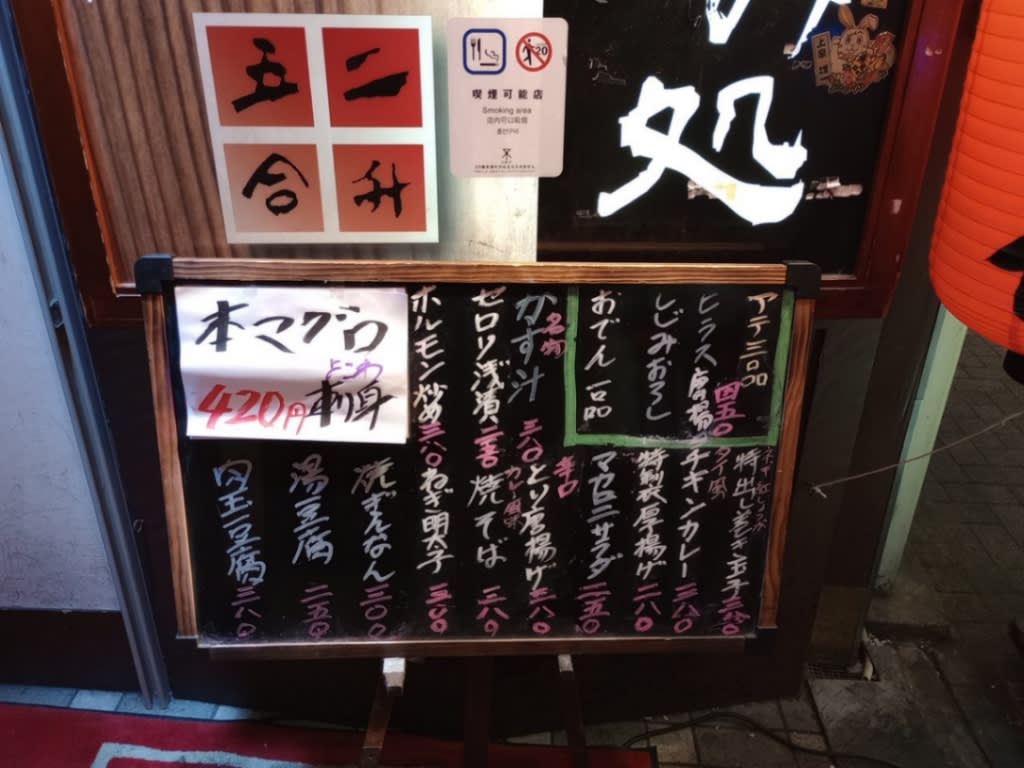 二升
五合
喫煙可能店
Smoking area
店内可以吸烟
흡연구역
20
処
アテ三品 四五〇
ヒラス唐揚
しじみおろし
おでん一品
名物
かす汁 三八〇
セロリ浅漬
ホルモン炒め 三八〇
本マグロ
よこわ
刺身
420円
ネギ・紅しょうが
特出し巻き玉子 三八〇
タイ風
チキンカレー 三八〇
特製厚揚げ 二八〇
マカロニサラダ 二五〇
辛口
とり唐揚げ 三八〇
カレー風味
焼そば 三八〇
ねぎ明太子 三〇〇
焼ぎんなん 三〇〇
湯豆腐 二五〇
肉玉豆腐 三八〇